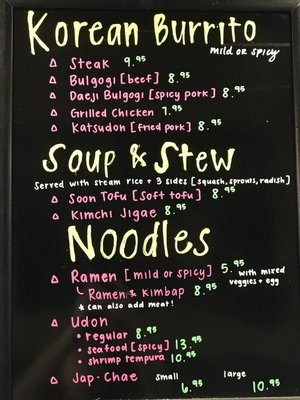 Korean Burrito
mild or spicy
Steak 9.95
Bulgogi [beef] 8.95
Daeji Bulgogi [spicy pork] 8.95
Grilled Chicken 7.95
Katsudon [fried pork] 8.95
Soup & Stew
Served with steam rice + 3 sides [squash, sprouts, radish]
Soon Tofu [Soft tofu] 8.95
Kimchi Jigae 8.95
Noodles
Ramen [mild or spicy] 5.95 with mixed
veggies + egg
Ramen & Kimbap 8.95
* can also add meat!
Udon
• regular 8.95
• seafood [spicy] 13.95
• shrimp tempura 10.95
Jap-Chae small large
6.95 10.95